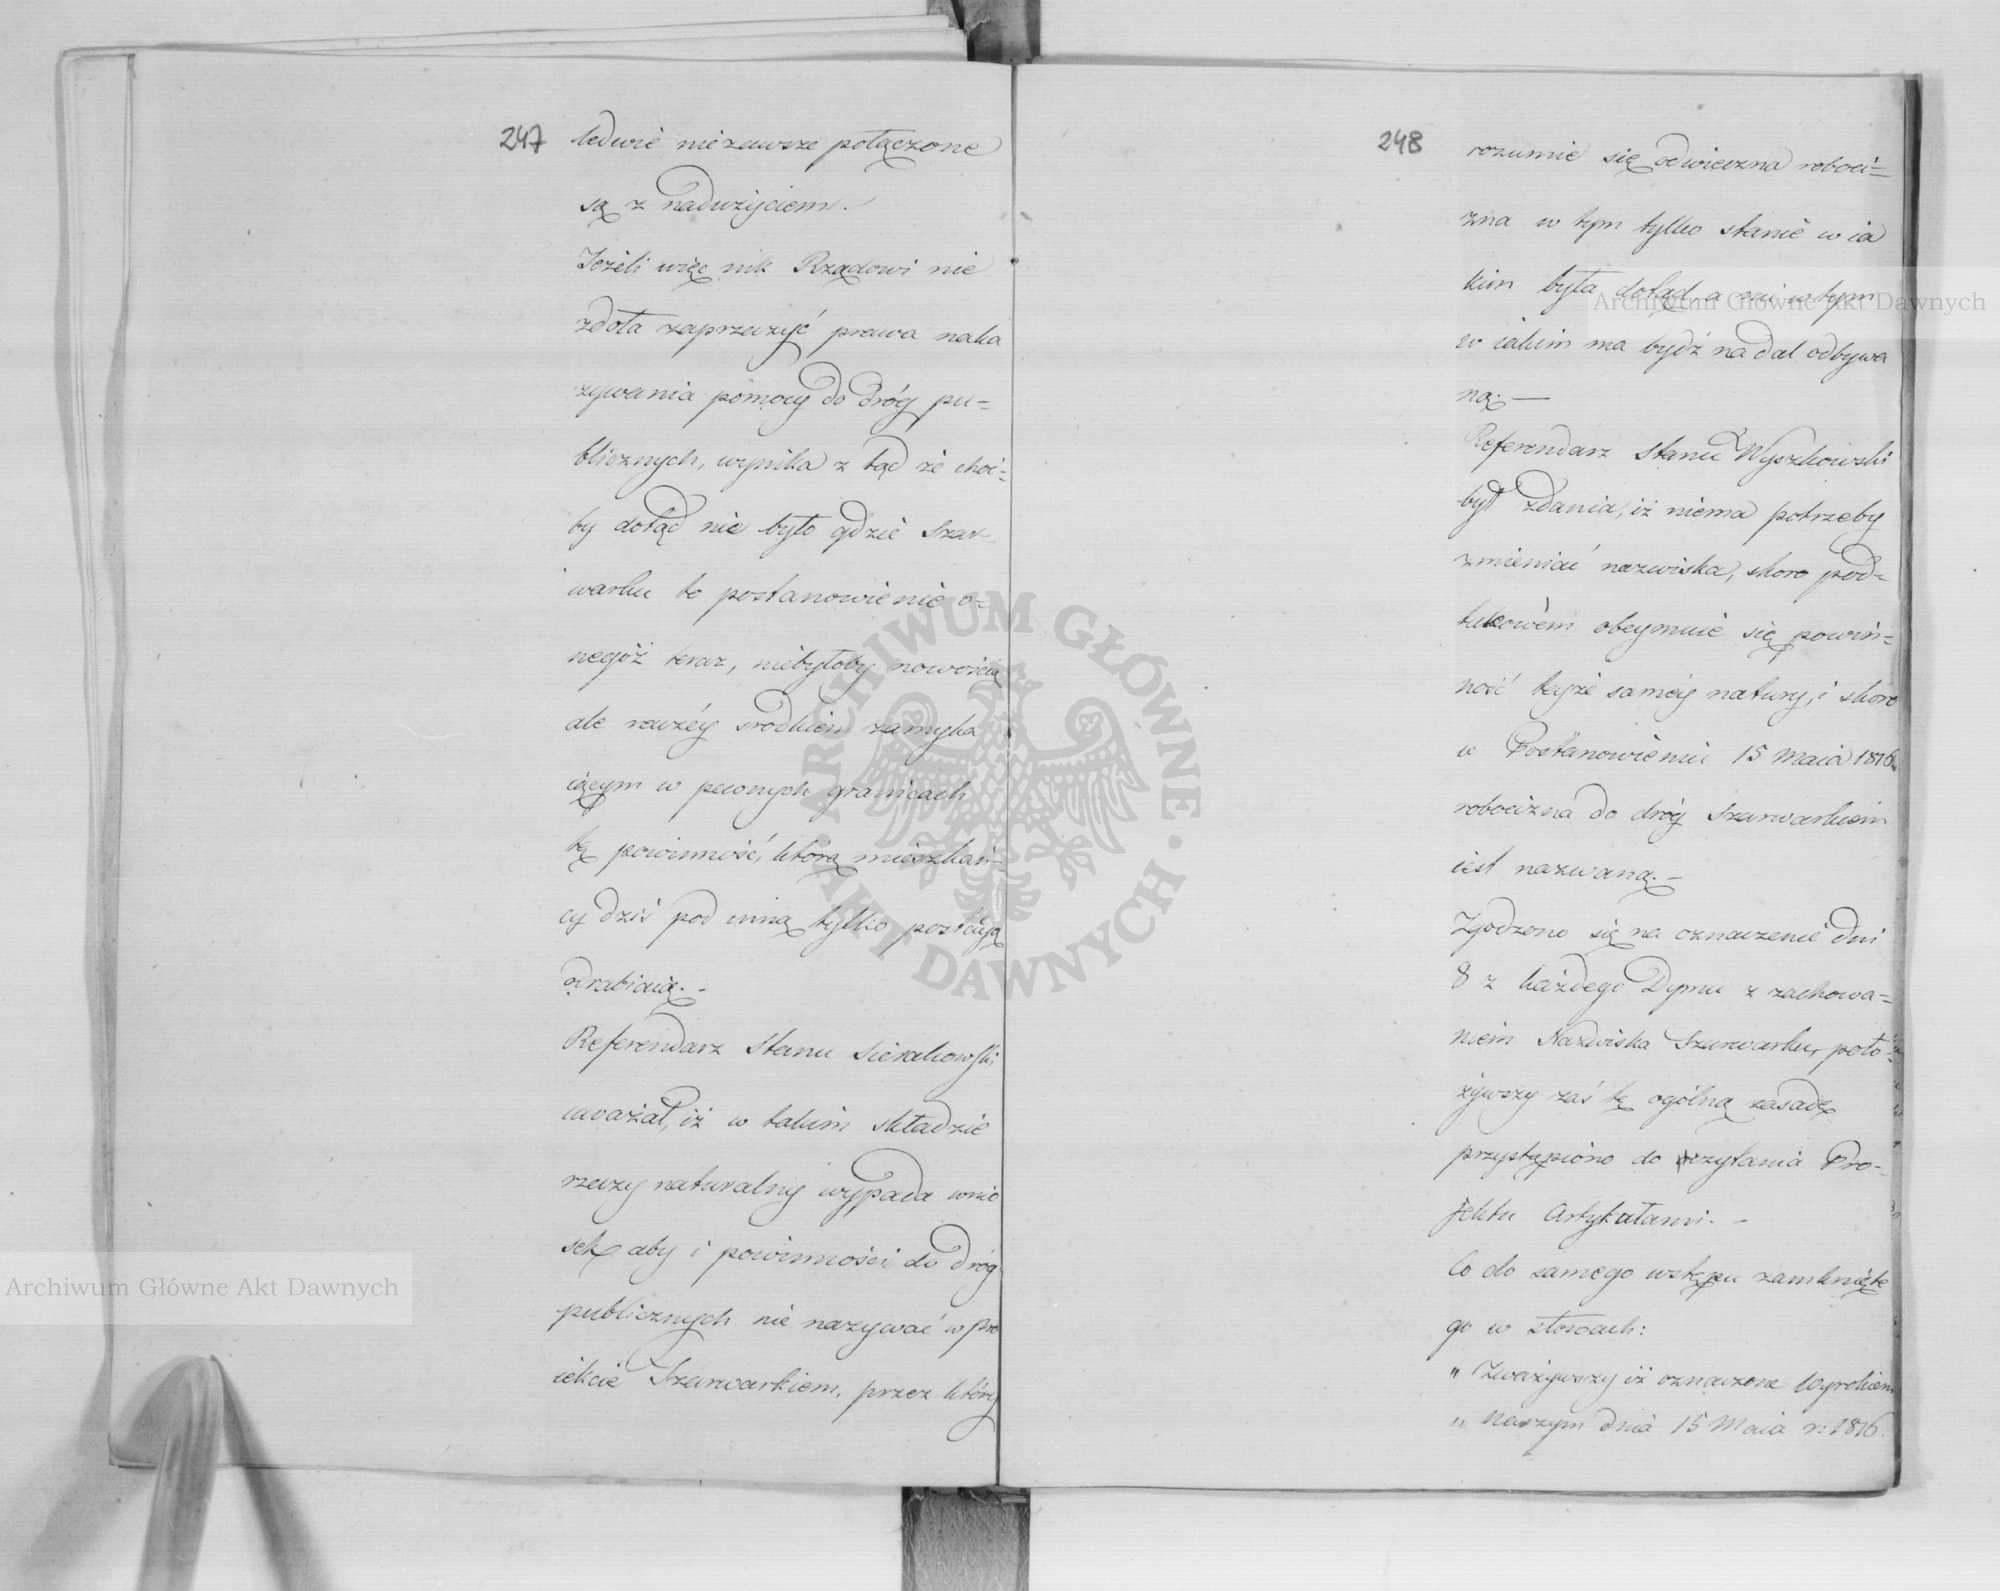 247
ledwie niezawsze połączone
są z nadużyciem.
Jeżeli więc nik Rządowi nie
zdoła zaprzeczyć prawa naka
zywania pomocy do dróg pu=
blicznych, wynika z tąd że choć=
by dotąd nie było gdzie Szar=
warku to postanowienie o=
negóż teraz, niebyłoby nowością
ale raczéy srodkiem zamyka
iącym w pewnych granicach
tę powinność, którą mieszkań=
cy dziś pod inną tylko postacyą
odrabiaią.-
Referendarz Stanu Sierakowski
uważał, iż w takim składzie
rzeczy naturalny wypada wnio
sek, aby i powinności do dróg
publicznych nie nazywać w pro
iekcie Szarwarkiem, przez który
248
rozumie się odwieczna roboci=
zna w tym tylko stanie w ia
kim była dotąd, a nie w tym
w iakim ma bydź nadal odbywa
ną.—
Referendarz Stanu Wyszkowski
był zdania, iż niema potrzeby
zmieniać nazwiska, skoro pod=
takowém obeymuie się powin=
ność teyże saméy natury, i skoro
w Postanowieniu 15 Maia 1816
robocizna do dróg Szarwarkiem
iest nazwaną.-
Zgodzono się na oznaczenie dni
8 z każdego Dymu z zachowa=
niem Nazwiska Szarwarku, poło=
żywszy zaś tę ogólną zasadę
przystąpiono do czytania Pro-
jektu Artykułami.-
Co do samego wstępu zamknięte
go w słowach:
" Zważywszy iż oznaczone Wyrokiem
" Naszym dnia 15 Maia r: 1816.
Archiwum Główne Akt Dawnych
Archiwum Główne Akt Dawnych
ARCHIWUM GŁÓWNE
AKT DAWNYCH